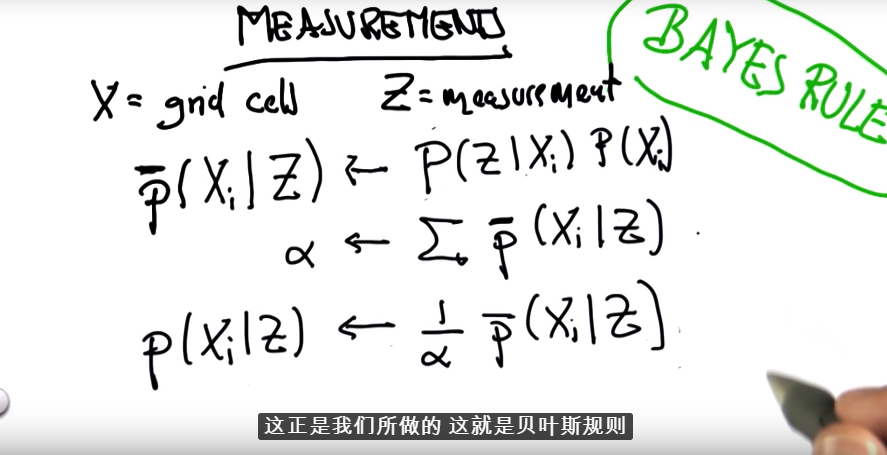 MEASUREMENT
BAYES RULE
X = grid cell Z = measurement
p̄(Xᵢ|Z) ← P(Z|Xᵢ) P(Xᵢ)
α ← Σ p̄(Xᵢ|Z)
p(Xᵢ|Z) ← 1/α p̄(Xᵢ|Z)
这正是我们所做的 这就是贝叶斯规则